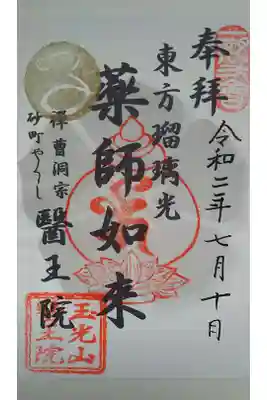 奉拝
令和二年七月十日
東方瑠璃光
薬師如来
禅曹洞宗
砂町やくし
醫王院
玉光山
醫王院